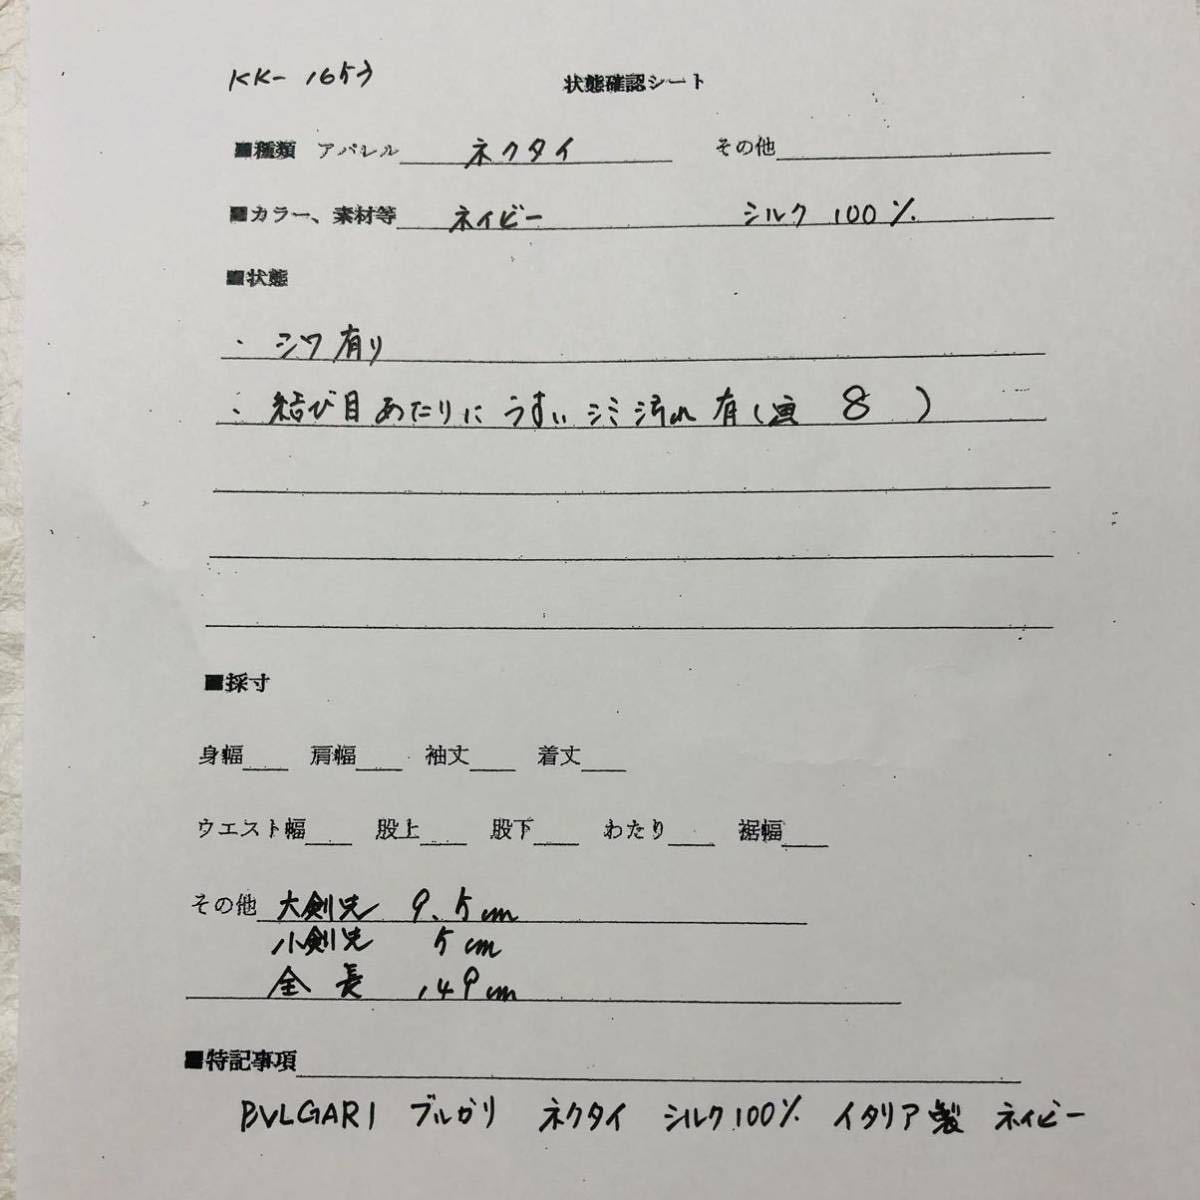 KK-1653
状態確認シート
■種類 アパレル ネクタイ その他
■カラー、素材等 ネイビー シルク 100%
■状態
・ シワ有り
・ 結び目あたりにうすいシミ汚れ有(画 8 )
■採寸
身幅 肩幅 袖丈 着丈
ウエスト幅 股上 股下 わたり 裾幅
その他 大剣先 9.5cm
小剣先 5cm
全長 149cm
■特記事項
BVLGARI ブルガリ ネクタイ シルク100% イタリア製 ネイビー